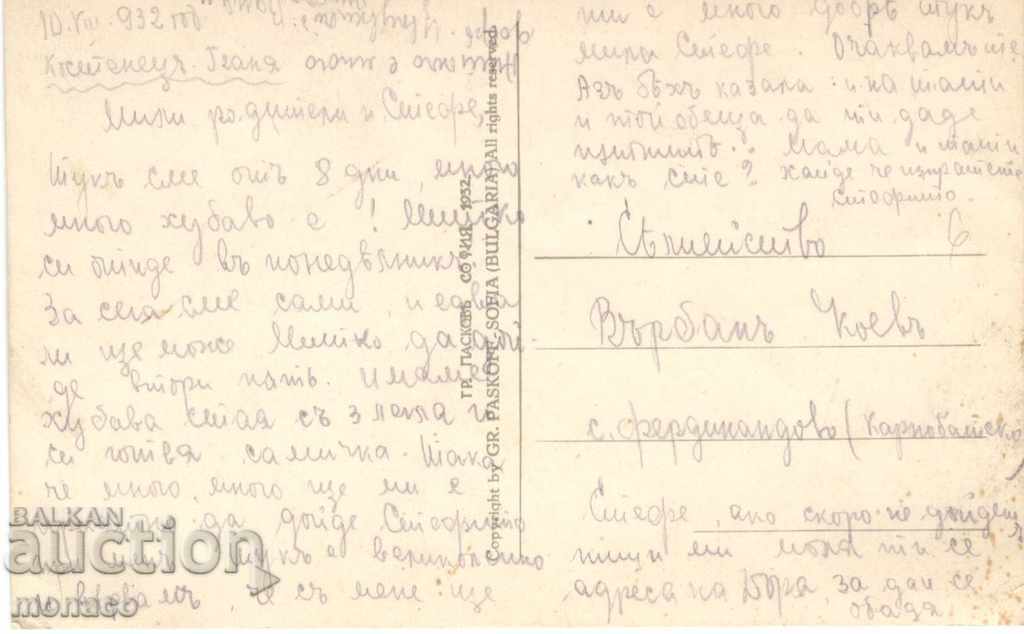 10. VIII. 932 год
Костенецъ. Баня
Мили родители и Стефе,
Тукъ сме отъ 8 дни, много
много хубаво е! Митко
си отиде въ понедѣлникъ.
За сега сме сами, и едва
ли ще може Митко да дой-
де втори пѫть. Имаме
хубава стая съ 3 легла и
си готвя самичка. Така
че много, много ще ми е
да дойде Стефчито
тукъ е великолепно
съ мене ще
ти е много добрѣ тукъ
мила Стефе. Очаквамъ те.
Азъ бѣхъ казала и на тати
и той обеща да ти даде
Мама и тати
какъ сте? Хайде че изпратете
Стефчито.
Сѣмейство
Върбанъ Коевъ
с. Фердинандово (Карнобатско
Стефе, ако скоро не дойдешъ
пиши ми моля ти се
адреса на Бора, за да и се
обадя
ГР. ПАСКОВЪ СОФИЯ 1932
Copyright by GR. PASKOFF, SOFIA (BULGARIA) All rights reserved.
BALKAN
auction
monaco